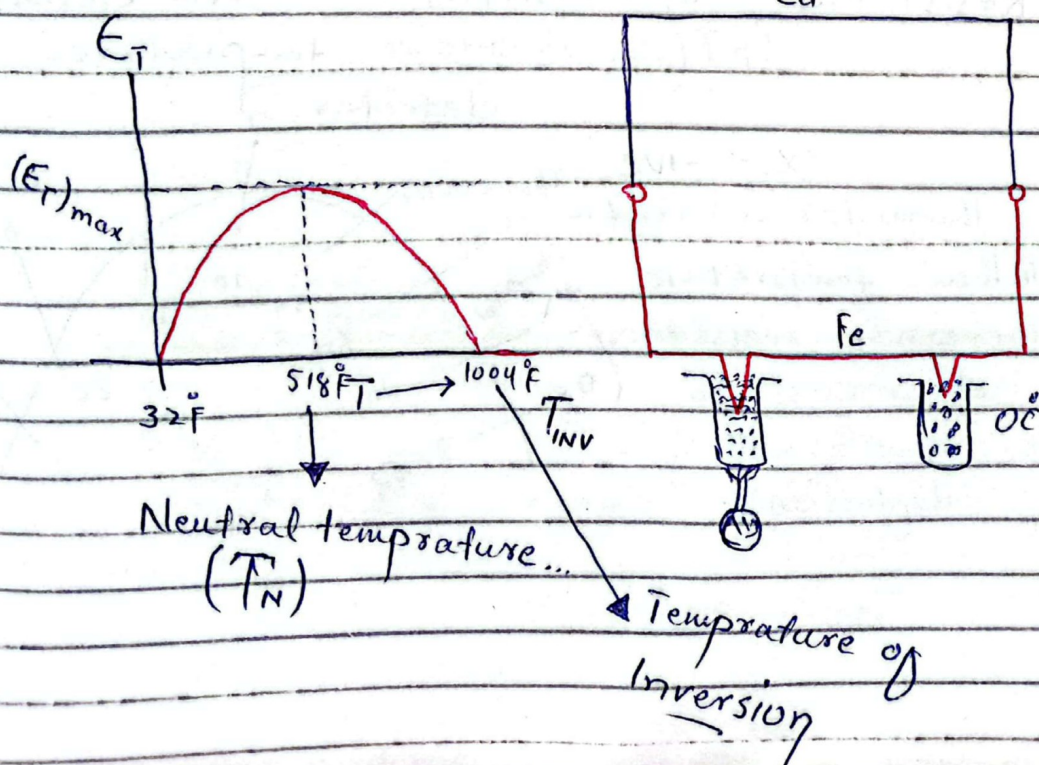 Cu
E_T
(E_T)max
Fe
32°F
518°F
T
1004°F
T_INV
0°C
Neutral temprature...
(T_N)
Temprature of
Inversion